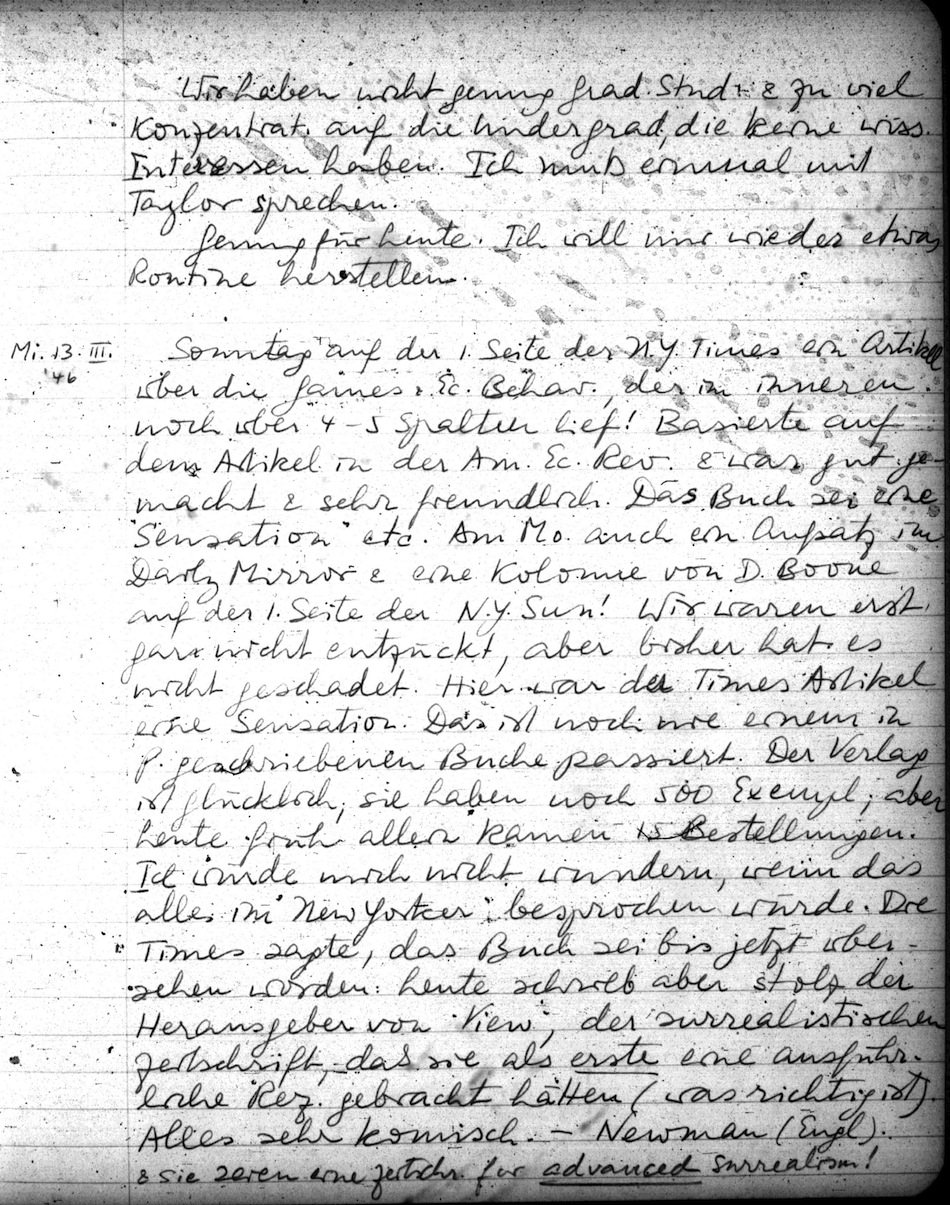 Wir haben nicht genug grad. Stud. & zu viel
Konzentrat. auf die Undergrad, die keine wiss.
Interessen haben. Ich muß einmal mit
Taylor sprechen.
Genug für heute. Ich will nur wieder etwas
Routine herstellen.
Mi. 13. III. '46
Sonntag auf der 1. Seite der N.Y. Times ein Artikel
über die Games & Ec. Behav., der im inneren
noch über 4-5 Spalten lief! Basierte auf
dem Artikel in der Am. Ec. Rev. & war gut ge-
macht & sehr freundlich. Das Buch sei eine
"Sensation" etc. Am Mo. auch ein Aufsatz im
Daily Mirror & eine Kolonne von D. Boone
auf der 1. Seite der N.Y. Sun! Wir waren erst
gar nicht entzückt, aber bisher hat es
nicht geschadet. Hier war der Times Artikel
eine Sensation. Das ist noch nie einem in
P. geschriebenen Buche passiert. Der Verlag
ist glücklich, sie haben noch 500 Exempl; aber
heute früh allein kamen 15 Bestellungen.
Ich würde mich nicht wundern, wenn das
alles im "New Yorker" besprochen würde. Die
Times sagte, das Buch sei bis jetzt über-
sehen worden: heute schrieb aber stolz der
Herausgeber von "View", der surrealistischen
Zeitschrift, daß sie als erste eine ausführ-
liche Rez. gebracht hätten (was richtig ist).
Alles sehr komisch. – Newman (Engl).
& sie seien eine Zeitschr. for advanced surrealism!